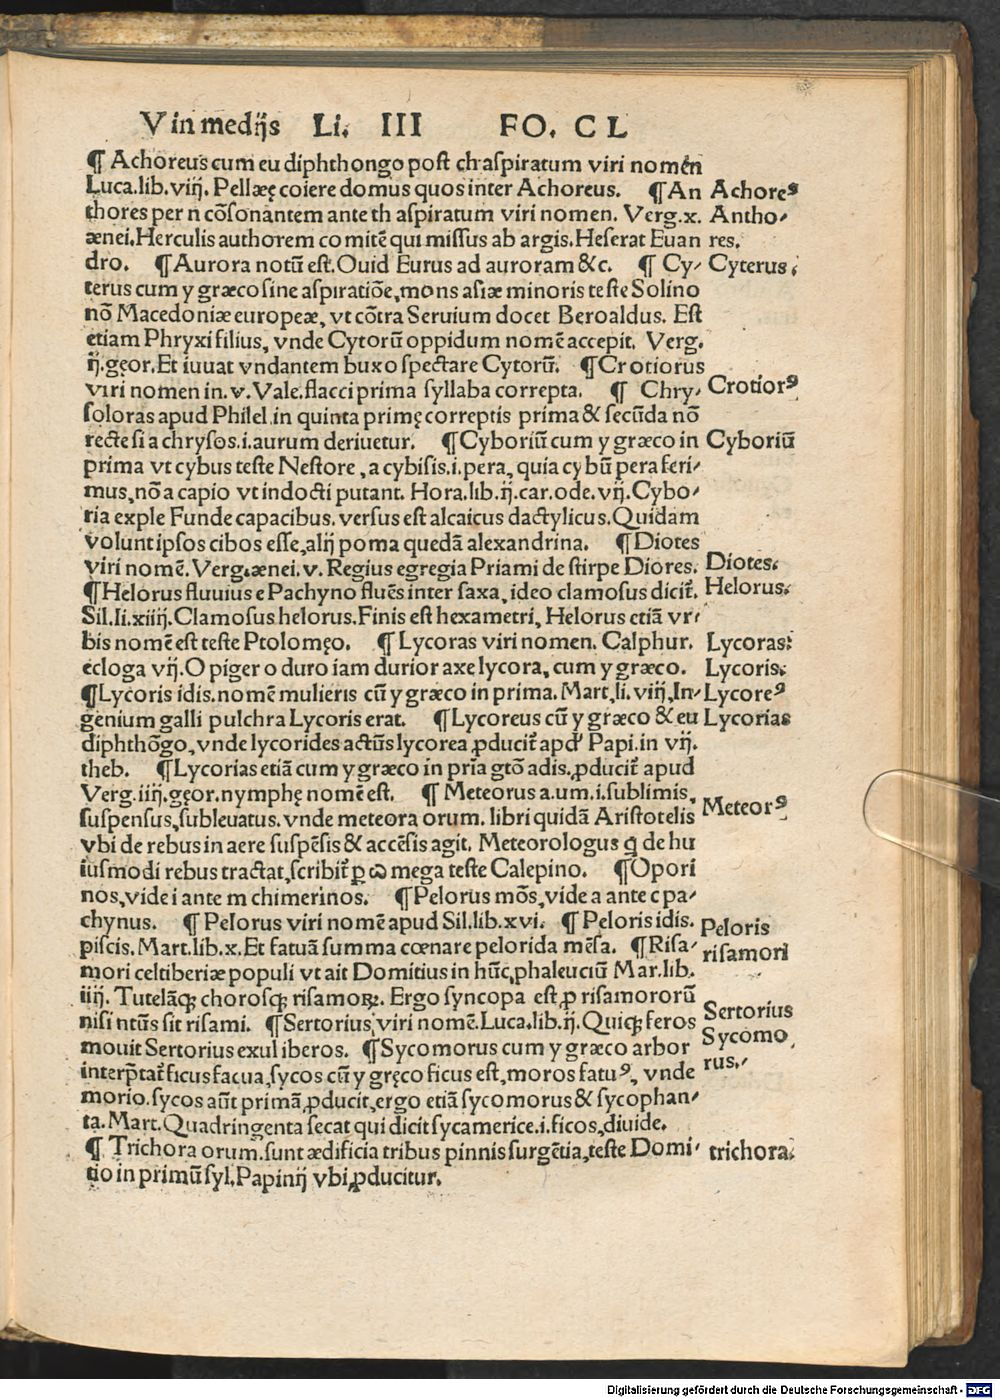 V in medijs Li. III FO. C L
¶ Achoreus cum eu diphthongo post ch aspiratum viri nomen
Luca.lib.viij. Pellæę coiere domus quos inter Achoreus. ¶ An
thores per n cōsonantem ante th aspiratum viri nomen. Verg.x.
ænei. Herculis authorem comitē qui missus ab argis. Heserat Euan
dro. ¶ Aurora notū est. Ouid Eurus ad auroram &c. ¶ Cy-
terus cum y græco sine aspiratiōe, mons asiæ minoris teste Solino
nō Macedoniæ europeæ, vt cōtra Seruium docet Beroaldus. Est
etiam Phryxi filius, vnde Cytorū oppidum nomē accepit. Verg.
ij.gęor. Et iuuat vndantem buxo spectare Cytorū. ¶ Crotiorus
viri nomen in. v. Vale.flacci prima syllaba correpta. ¶ Chry-
soloras apud Philel.in quinta primę correptis prima & secūda nō
recte si a chrysos.i.aurum deriuetur. ¶ Cyboriū cum y græco in
prima vt cybus teste Nestore, a cybisis.i.pera, quia cybū pera feri-
mus, nō a capio vt indocti putant. Hora.lib.ij.car.ode.vij. Cybo-
ria exple Funde capacibus. versus est alcaicus dactylicus. Quidam
volunt ipsos cibos esse, alij poma quedā alexandrina. ¶ Diotes
viri nomē. Verg.ænei.v. Regius egregia Priami de stirpe Diores.
¶ Helorus fluuius e Pachyno fluēs inter saxa, ideo clamosus dicit᷑.
Sil.li.xiiij. Clamosus helorus. Finis est hexametri, Helorus etiā vr-
bis nomē est teste Ptolomęo. ¶ Lycoras viri nomen. Calphur.
ecloga vij. O piger o duro iam durior axe lycora, cum y græco.
¶ Lycoris idis. nomē mulieris cū y græco in prima. Mart.li.viij. In-
genium galli pulchra Lycoris erat. ¶ Lycoreus cū y græco & eu
diphthōgo, vnde lycorides actūs lycorea ꝓducit᷑ apd' Papi.in vij.
theb. ¶ Lycorias etiā cum y græco in pria gtō adis. ꝓducit᷑ apud
Verg.iiij.gęor.nymphę nomē est. ¶ Meteorus a.um.i.sublimis,
suspensus, subleuatus. vnde meteora orum. libri quidā Aristotelis
vbi de rebus in aere suspēsis & accēsis agit. Meteorologus q̄ de hu
iusmodi rebus tractat, scribit᷑ ꝑ ω mega teste Calepino. ¶ Opori
nos, vide i ante m chimerinos. ¶ Pelorus mōs, vide a ante c pa-
chynus. ¶ Pelorus viri nomē apud Sil.lib.xvi. ¶ Peloris idis.
piscis. Mart.lib.x. Et fatuā summa cœnare pelorida mēsa. ¶ Risa-
mori celtiberiæ populi vt ait Domitius in hūc, phaleuciū Mar.lib.
iiij. Tutelāqȝ chorosqȝ risamoꝝ. Ergo syncopa est ꝓ risamororū
nisi ntūs sit risami. ¶ Sertorius, viri nomē. Luca.lib.ij. Quiqȝ feros
mouit Sertorius exul iberos. ¶ Sycomorus cum y græco arbor
interp̄tat᷑ ficus facua, sycos cū y gręco ficus est, moros fatuꝰ, vnde
morio. sycos aūt primā ꝓducit, ergo etiā sycomorus & sycophan-
ta. Mart. Quadringenta secat qui dicit sycamerice.i.ficos, diuide.
¶ Trichora orum. sunt ædificia tribus pinnis surgētia, teste Domi-
tio in primū syl. Papinij vbi ꝓducitur.
Achoreꝰ
Antho-
res.
Cyterus.
Crotiorꝰ
Cyboriū
Diotes.
Helorus.
Lycoras.
Lycoris.
Lycoreꝰ
Lycorias
Meteorꝰ
Peloris
risamori
Sertorius
Sycomo
rus.
trichora.
Digitalisierung gefördert durch die Deutsche Forschungsgemeinschaft - DFG